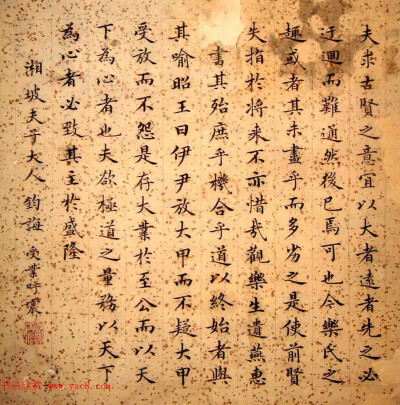 夫求古賢之意宜以大者遠者先之必
迂迴而難通然後已焉可也今樂氏之
趣或者其未盡乎而多劣之是使前賢
失指於将来不亦惜哉觀樂生遺燕惠
書其殆庶乎機合乎道以終始者與
其喻昭王曰伊尹放大甲而不疑大甲
受放而不怨是存大業於至公而以天
下為心者也夫欲極道之量務以天下
為心者必致其主於盛隆
湘坡夫子大人 鈞誨 受業
www.yac8.com